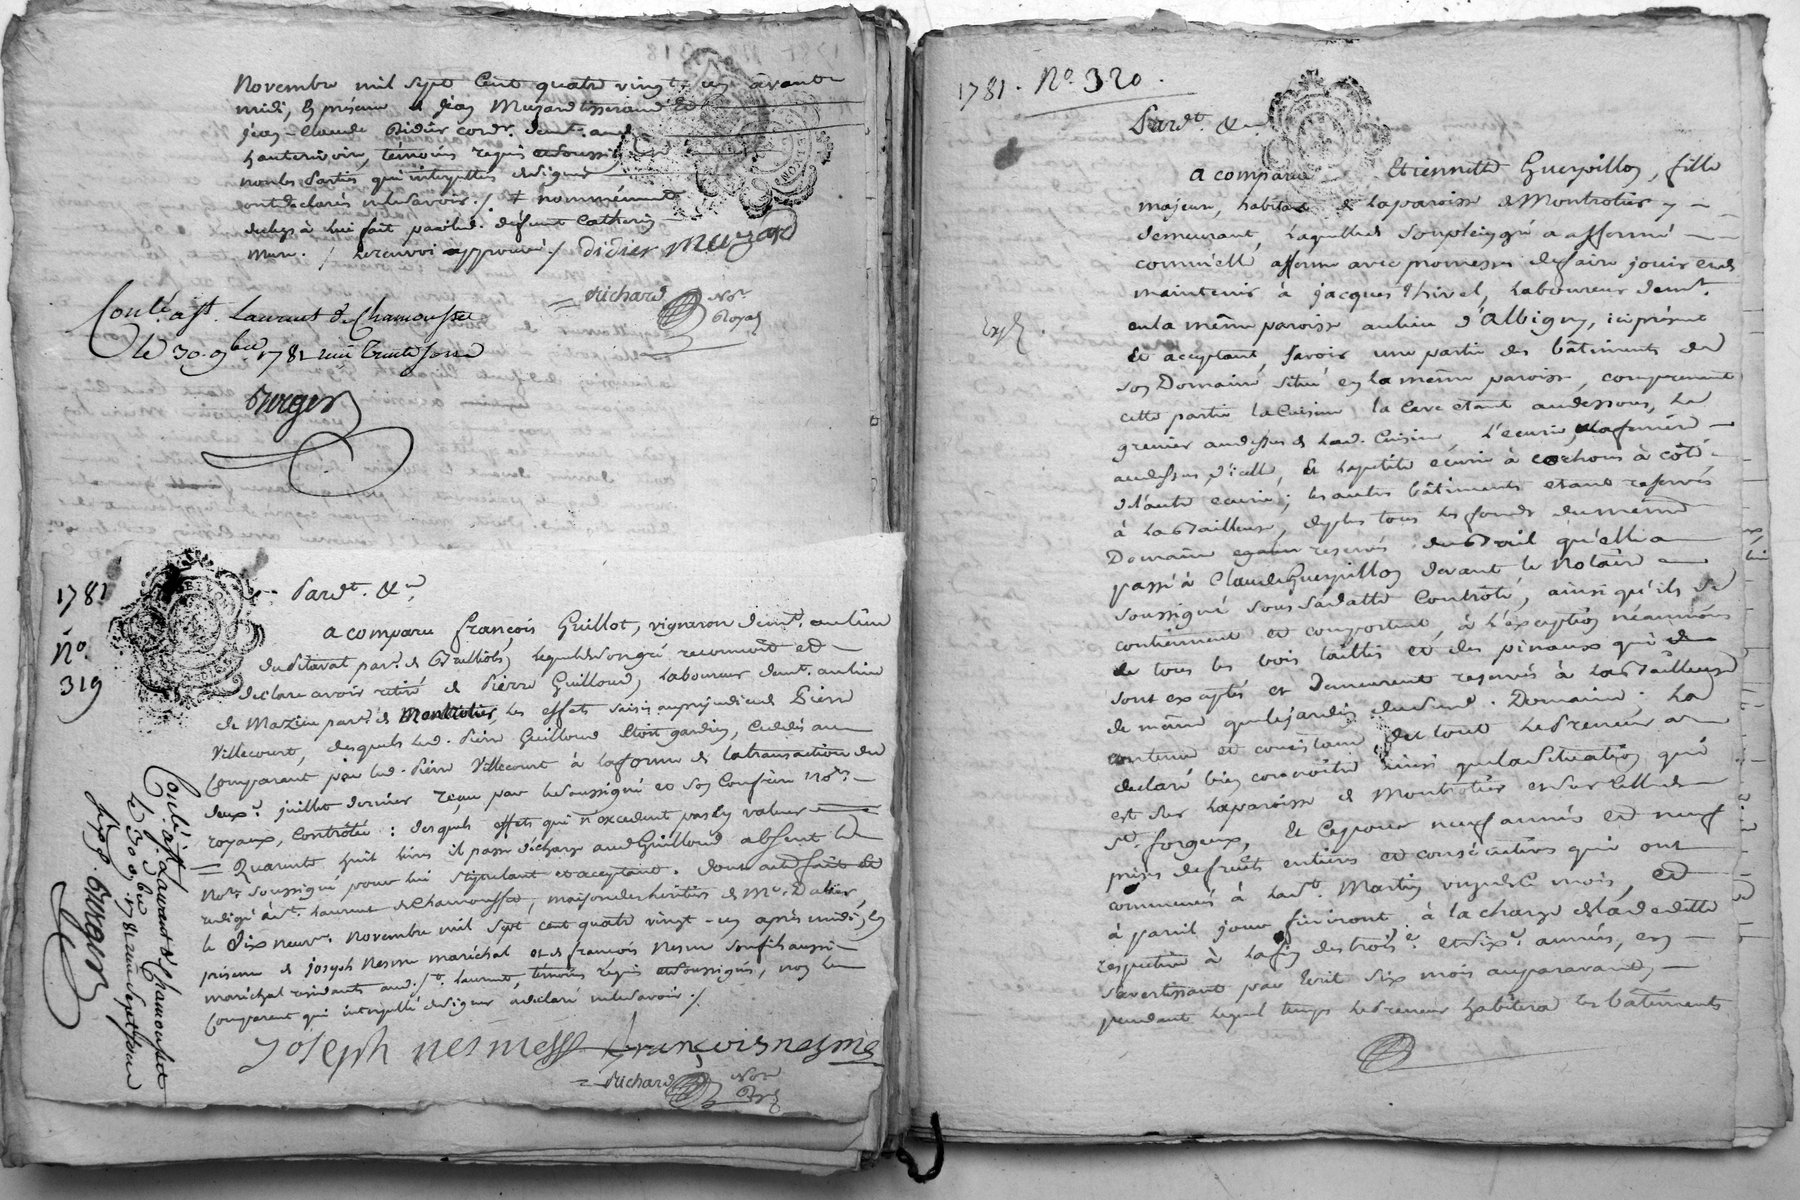 Novembre mil sept Cent quatre vingt un avant
midi, En présence de Jean Muzard tisserand Et
Jean-Claude Didier cordr. demt. aud.
hauterivoir, témoins requis et soussignés
non les parties qui interpellées de signer
ont declarés ne le savoir ./. + nommément
du legs à lui fait par lad. defunte Catherine
mure. / Le renvoi approuvé / didier Muzard
Richard Nore Royal
Conlé. à St. Laurent de Chamousset
Le 30. 9bre 1781 recu trente sous
Burger
1781
No.
319
Pardt. &a
a comparu françois Guillot, vigneron demt. au lieu
parr. de lequel de son gré reconnoit et
declare avoir retiré de Pierre Guilloud, laboureur demt. au lieu
de Mazieu parr. de Montrotier, les effets saisis au préjudice de Pierre
Villecourt, desquels led. Pierre Guilloud étoit gardien, cedés au
Comparant par led. Pierre Villecourt à la forme de la transaction du
deux juillet dernier reçue par le soussigné et son Confrère nores
royaux, Contrôlée : desquels effets qui n'excedent pas en valeur
Quarante huit livres il passe décharge aud. Guilloud absent le
Nore. soussigné pour lui stipulant et acceptant. dont acte fait et
redigé à St. Laurent de Chamousset, maison des héritiers de Mr. Dalier,
le dix neuf Novembre mil sept cent quatre vingt-un après midi, En
présence de Joseph Nesme maréchal et de françois Nesme son fils aussi
maréchal residants aud. St. Laurent, témoins requis et soussignés, non le
Comparant qui interpellé de signer a declaré ne le savoir ./.
Joseph nesme françois nesme
Richard Nore Ryl
Conlé. à St. Laurent de Chamousset
Le 30. 9bre 1781 recu sept sous
six d. Burger
1781. No. 320.
Pardt. &a
a comparu Etiennette Guerpillon, fille
majeure, habitante de la paroisse de Montrotier y
demeurant, laquelle de son plein gré a affermé
comm'elle afferme avec promesse de faire jouir et de
maintenir à Jacques thivel, laboureur demt.
Expé.
en la même paroisse au lieu d'Albigny, ici présent
Et acceptant, savoir une partie des bâtiments de
son Domaine situé en la même paroisse, comprenant
cette partie la Cuisine, la Cave etant au dessous, le
grenier au dessus de lad. Cuisine, l'écurie, la fenière
au dessus d'icelle, Et la petite écurie à cochons à côté
de l'autre ecurie ; les autres bâtiments etant reservés
à la Bailleuse, de plus tous les fonds du même
Domaine non reservés du Bail qu'elle a
passé à Claude Guerpillon devant le Notaire
soussigné sous sa datte Contrôlé, ainsi qu'ils se
contiennent et comportent, à l'exception néanmoins
de tous les bois taillis et des pinaux qui
sont exceptés et demeurent reservés à la Bailleuse
de même que le jardin dud. Domaine. La
contenue et consistance du tout le Preneur a
declaré bien connoitre ainsi que la situation qui
est sur la paroisse de Montrotier et sur celle de
St. forgeux, Et ce pour neuf années et neuf
prises de fruits entières et consécutives qui ont
commencés à la St. Martin onze de ce mois, et
à pareil jour finiront, à la charge de la dedite
respective à la fin des trois. et six. années, en
s'avertissant par ecrit six mois auparavant,
pendant lequel temps le Preneur habitera les bâtiments